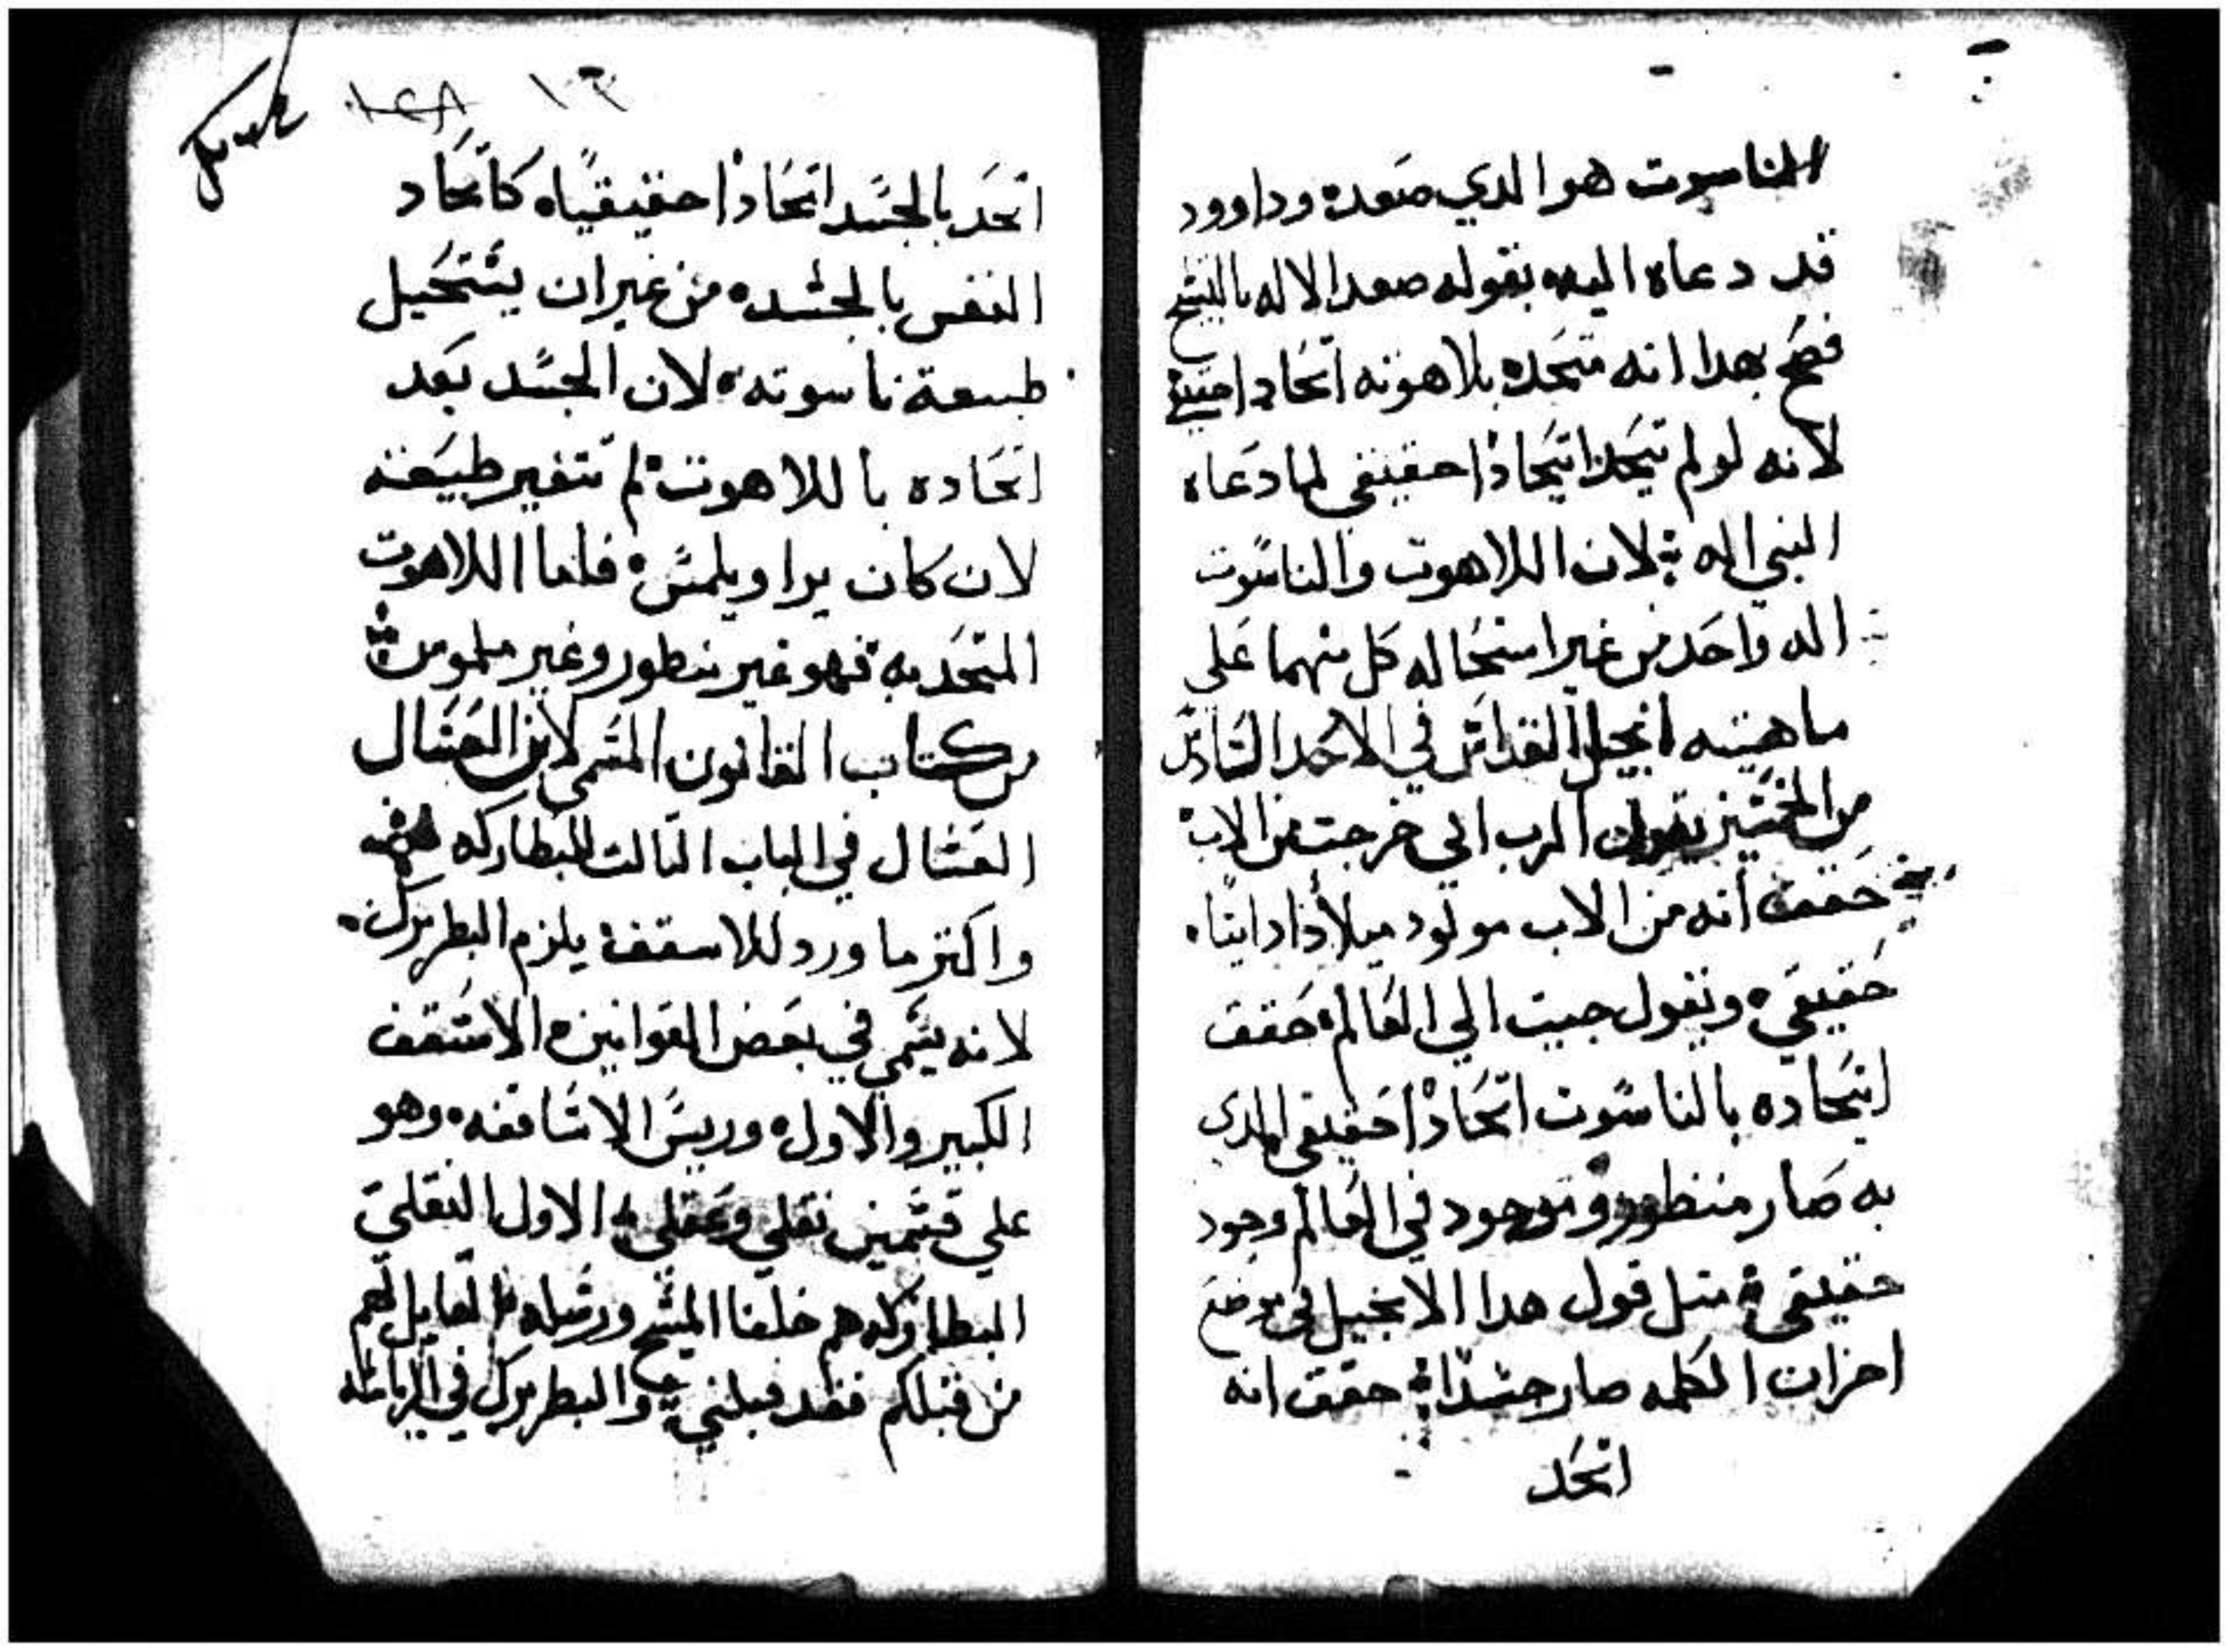 الناسوت هو الدي صعده وداوود
قد دعاه اليه بقوله صعد الاله بالتبتيح
فصح بهدا انه متحده بلاهوته اتحادا
لانه لو لم تيحد اتيحادا حقيقي لما دعاه
النبي اله لان اللاهوت والناسوت
اله واحد من غير استحاله كل منهما علي
ماهيته انجيل القداس في الاحد السادس
من الخمسين يقول الرب اني خرجت من الاب
حقق انه من الاب مولود ميلادا داتيا
حقيقي ونقول جيت الي العالم حقق
اتيحاده بالناسوت اتحادا حقيقي الدي
به صار منظور وموجود في العالم وجود
حقيقي متل قول هدا الانجيل في موضع
اخر ان الكلمه صار جسدا حقق انه
اتحد
١٠٣
اتحد بالجسد اتحادا حقيقيا كاتحاد
النفس بالجسد من غير ان يستحيل
طبيعة ناسوته لان الجسد بعد
اتحاده باللاهوت لم تتغير طبيعته
لان كان يرا ويلمس فاما اللاهوت
المتحد به فهو غير منظور وغير ملموس
من كتاب القانون المسمى لابن العسال
العسال في الباب التالت للبطاركه
واكتر ما ورد للاسقف يلزم البطريرك
لانه يسمي في بعض القوانين الاسقف
الكبير والاول وريس الاساقفه وهو
علي قسمين نقلي وعقلي الاول النقلي
البطاركه هم خلفا المسيح ورسله القايل لهم
من قبلكم فقد قبلني والبطريرك في الرياسه